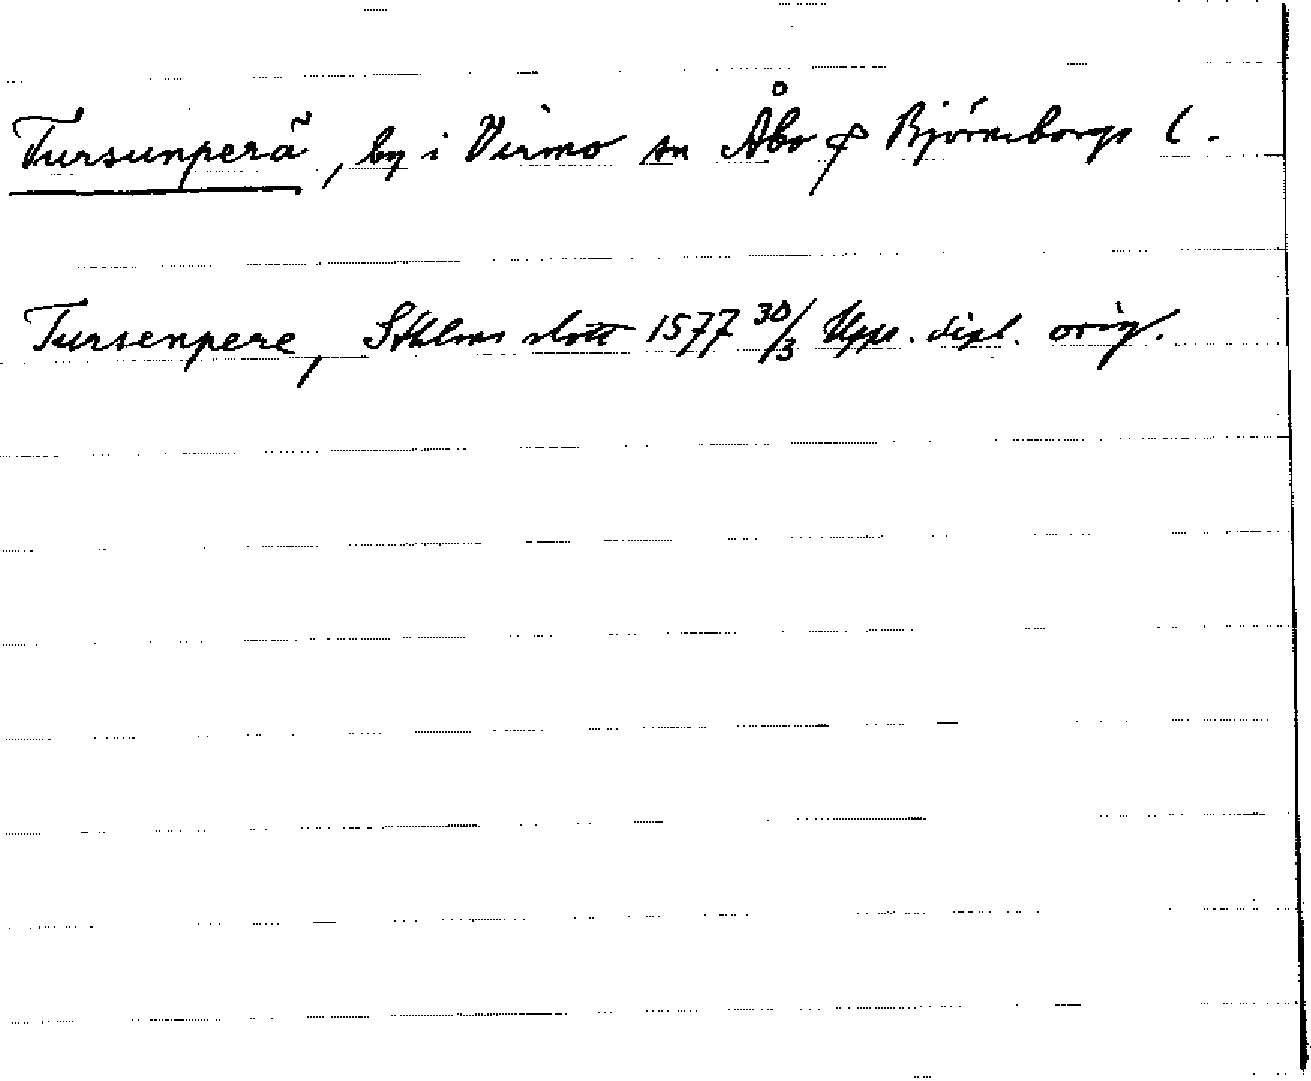 Tursunperä, by i Virmo sn Åbo & Björneborgs l.
Tursenpere, Sthlms slott 1577 30/3 Upps. dipl. orig.